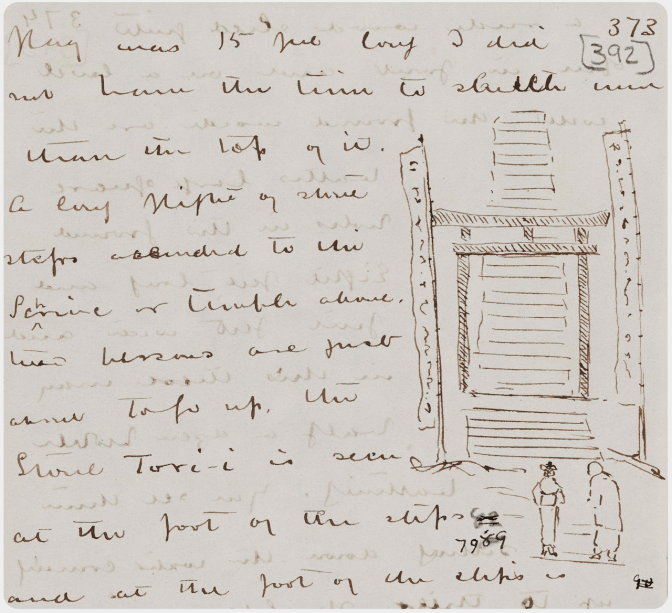 373
[392]
Flag was 15 feet long I did
not have the time to sketch more
than the top of it.
A long flight of stone
steps ascended to the
Schrine or temple above.
two persons are just
about to go up. the
Stone Tori-i is seen
at the foot of the steps
89
and at the foot of the steps is